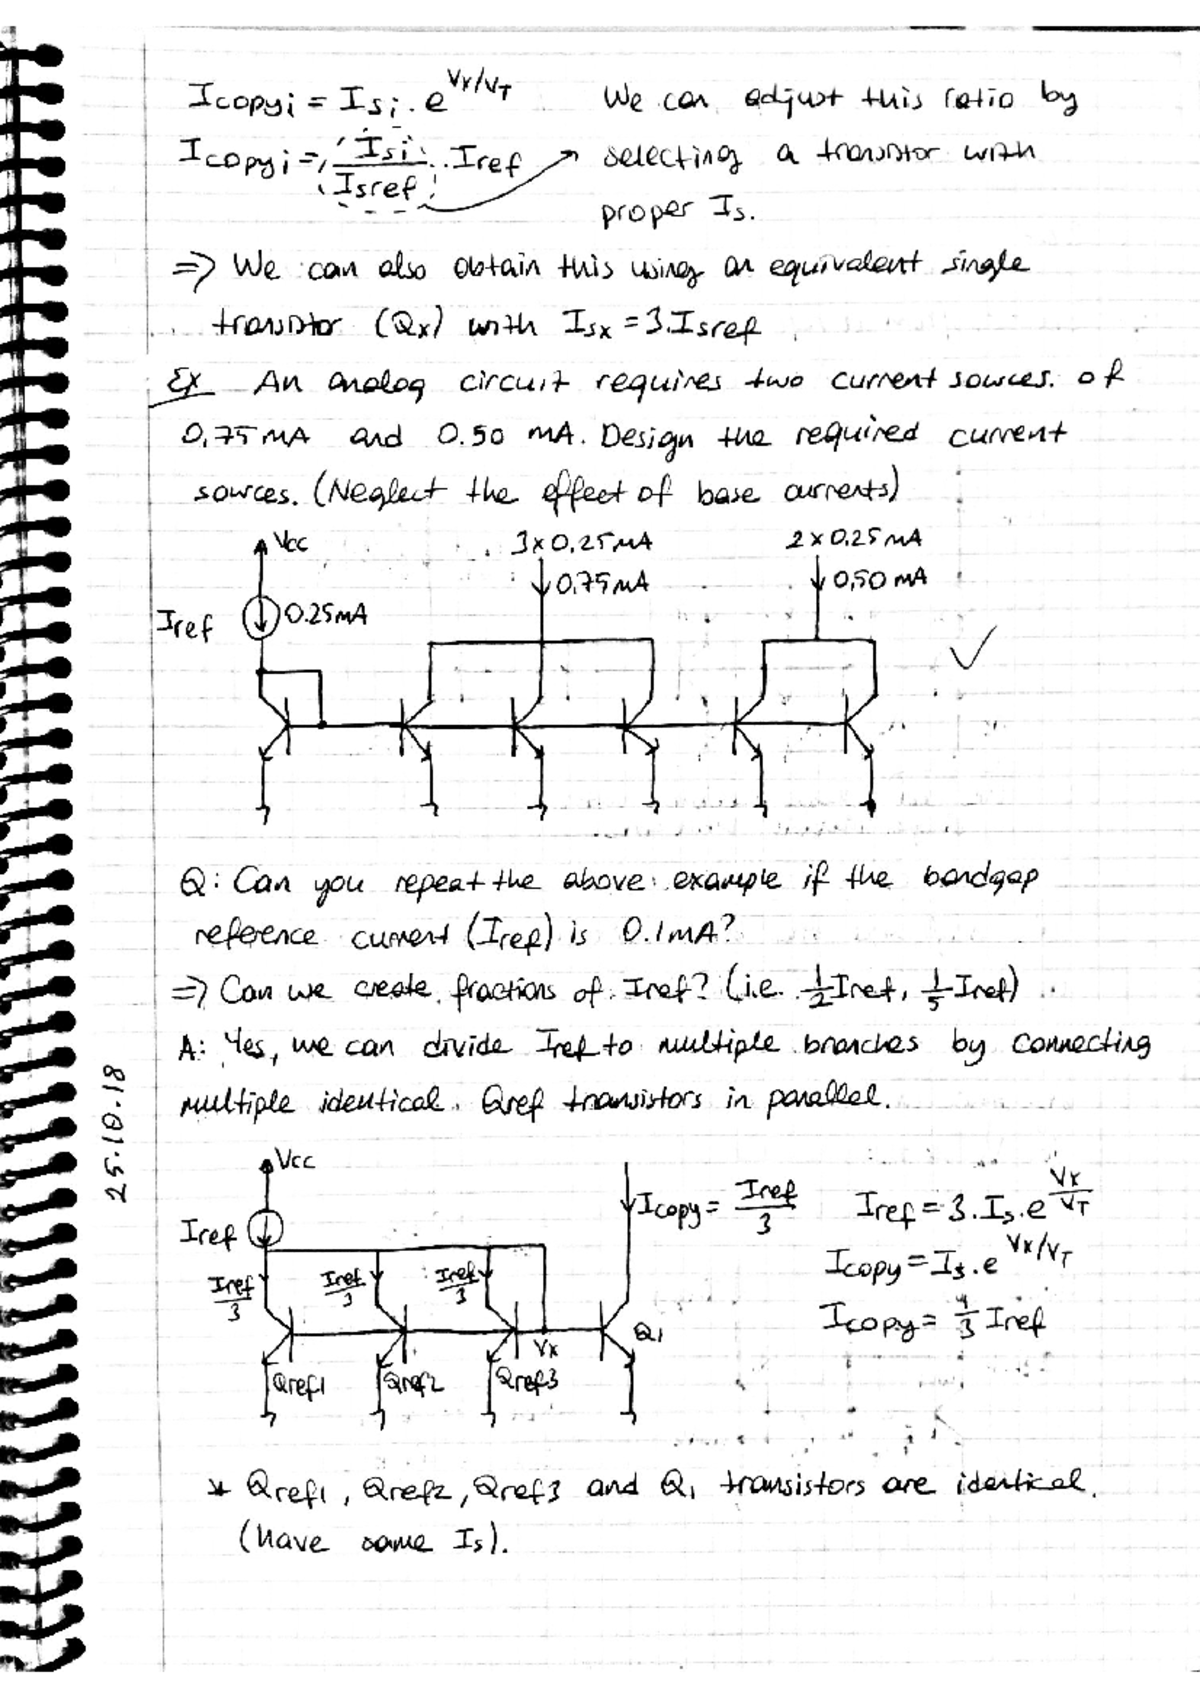 Icopyi = Isi . e^Vx/VT
We can adjust this ratio by
Icopyi = Isi/Isref . Iref
selecting a transistor with
proper Is.
=> We can also obtain this using an equivalent single
transistor (Qx) with Isx = 3.Isref
Ex An analog circuit requires two current sources. of
0,75 mA and 0.50 mA. Design the required current
sources. (Neglect the effect of base currents)
Vcc
3 x 0,25 mA
2 x 0.25 mA
0.75 mA
0,50 mA
Iref
0.25mA
Q: Can you repeat the above example if the bandgap
reference current (Iref) is 0.1mA?
=> Can we create fractions of Iref? (i.e. 1/2 Iref, 1/5 Iref)
A: Yes, we can divide Iref to multiple branches by connecting
multiple identical. Qref transistors in parallel.
25.10.18
Vcc
Icopy = Iref/3
Iref = 3.Is.e^Vx/VT
Iref
Icopy = Is.e^Vx/VT
Iref/3
Iref/3
Iref/3
Icopy = 1/3 Iref
Vx
Q1
Qref1
Qref2
Qref3
* Qref1, Qref2, Qref3 and Q1 transistors are identical.
(have same Is).